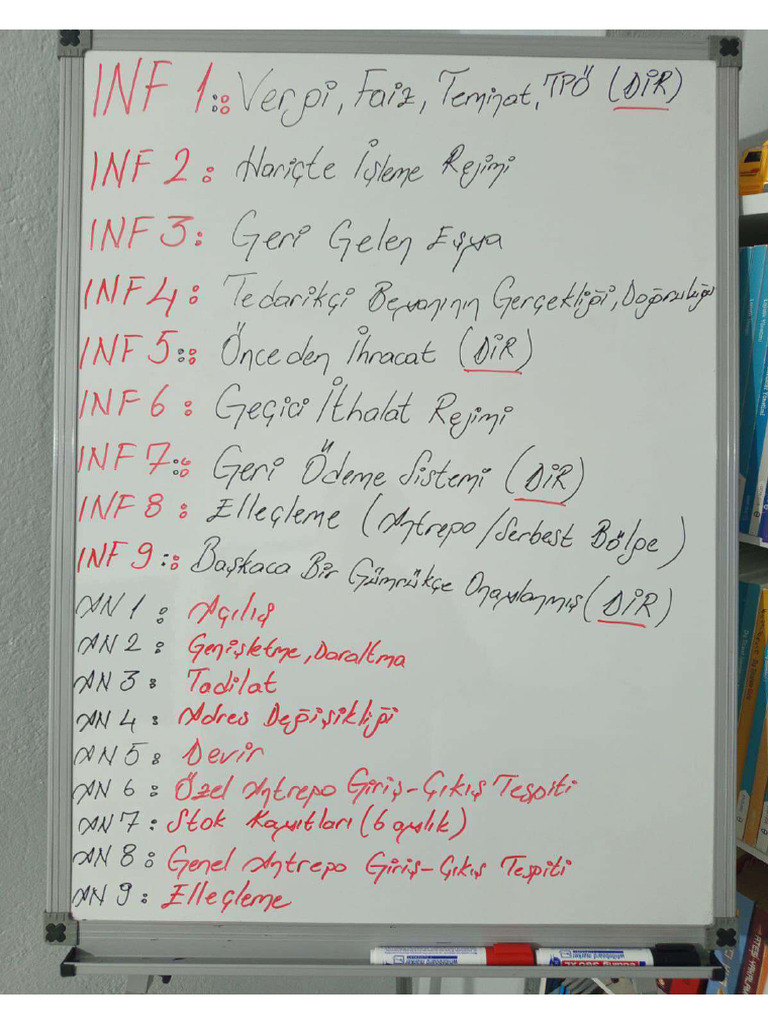 INF 1: Vergi, Faiz, Teminat, TPÖ (DİR)
INF 2: Hariçte İşleme Rejimi
INF 3: Geri Gelen Eşya
INF 4: Tedarikçi Beyanının Gerçekliği, Doğruluğu
INF 5: Önceden İhracat (DİR)
INF 6: Geçici İthalat Rejimi
INF 7: Geri Ödeme Sistemi (DİR)
INF 8: Elleçleme (Antrepo/Serbest Bölge)
INF 9: Başkaca Bir Gümrükçe Onaylanmış (DİR)
AN 1: Açılış
AN 2: Genişletme, Daraltma
AN 3: Tadilat
AN 4: Adres Değişikliği
AN 5: Devir
AN 6: Özel Antrepo Giriş-Çıkış Tespiti
AN 7: Stok Kayıtları (6 aylık)
AN 8: Genel Antrepo Giriş-Çıkış Tespiti
AN 9: Elleçleme